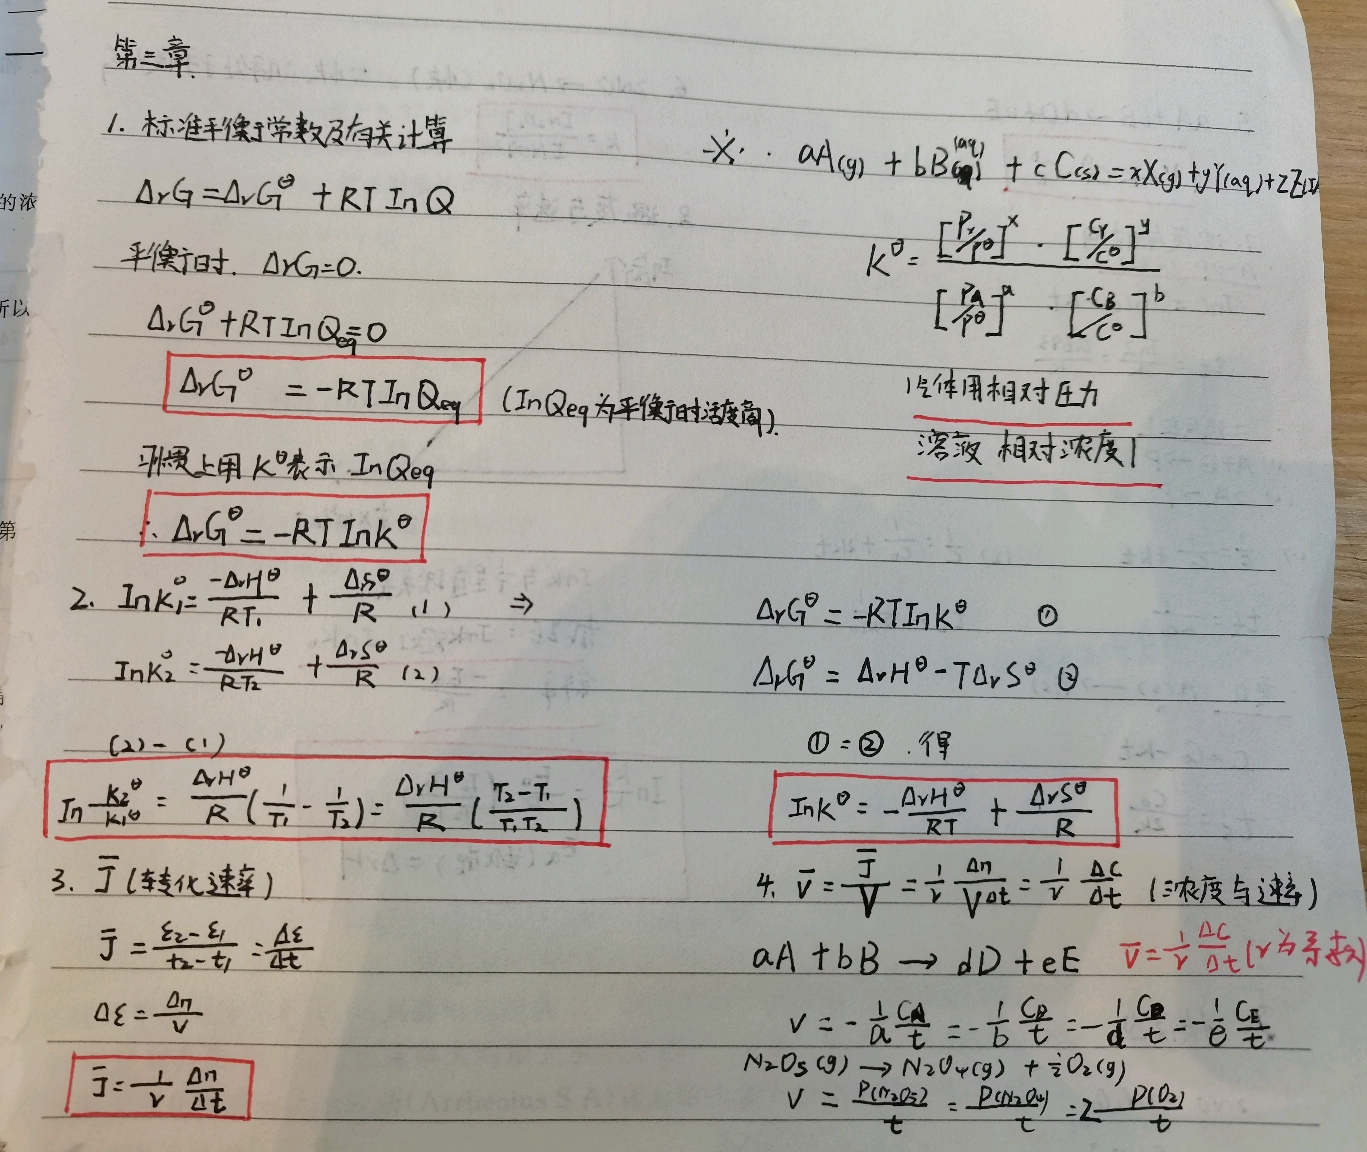 第三章.
1. 标准平衡常数及有关计算
ΔrG=ΔrG^θ + RT ln Q
平衡时. ΔrG=0.
ΔrG^θ + RT ln Qeq=0
ΔrG^θ = -RT ln Qeq (lnQeq为平衡时活度商).
习惯上用 K^θ表示 lnQeq
∴ ΔrG^θ = -RT lnK^θ
※· · aA(g) + bB(aq) + cC(s) = xX(g)+yY(aq)+zZ(l)
K^θ = [Px/P^θ]^x · [CY/C^θ]^y / [PA/P^θ]^a · [CB/C^θ]^b
气体用相对压力
溶液 相对浓度
2. lnK1^θ = -ΔrH^θ/RT1 + ΔrS^θ/R (1) ⇒
lnK2^θ = -ΔrH^θ/RT2 + ΔrS^θ/R (2)
(2) - (1)
ln K2^θ/K1^θ = ΔrH^θ/R (1/T1 - 1/T2) = ΔrH^θ/R (T2-T1/T1T2)
ΔrG^θ = -RTlnK^θ ①
ΔrG^θ = ΔrH^θ - TΔrS^θ ②
①=② .得
lnK^θ = -ΔrH^θ/RT + ΔrS^θ/R
3. J̄ (转化速率)
J̄ = ε2-ε1/t2-t1 = Δε/Δt
Δε = Δn/ν
J̄ = 1/ν Δn/Δt
4. v̄ = J̄/V = 1/ν Δn/VΔt = 1/ν ΔC/Δt (浓度与速率)
aA + bB → dD + eE v̄ = 1/ν ΔC/Δt (ν为系数)
v = -1/a CA/t = -1/b CB/t = -1/d CD/t = -1/e CE/t
N2O5(g) → N2O4(g) + 1/2O2(g)
v = P(N2O5)/t = P(N2O4)/t = 2 P(O2)/t